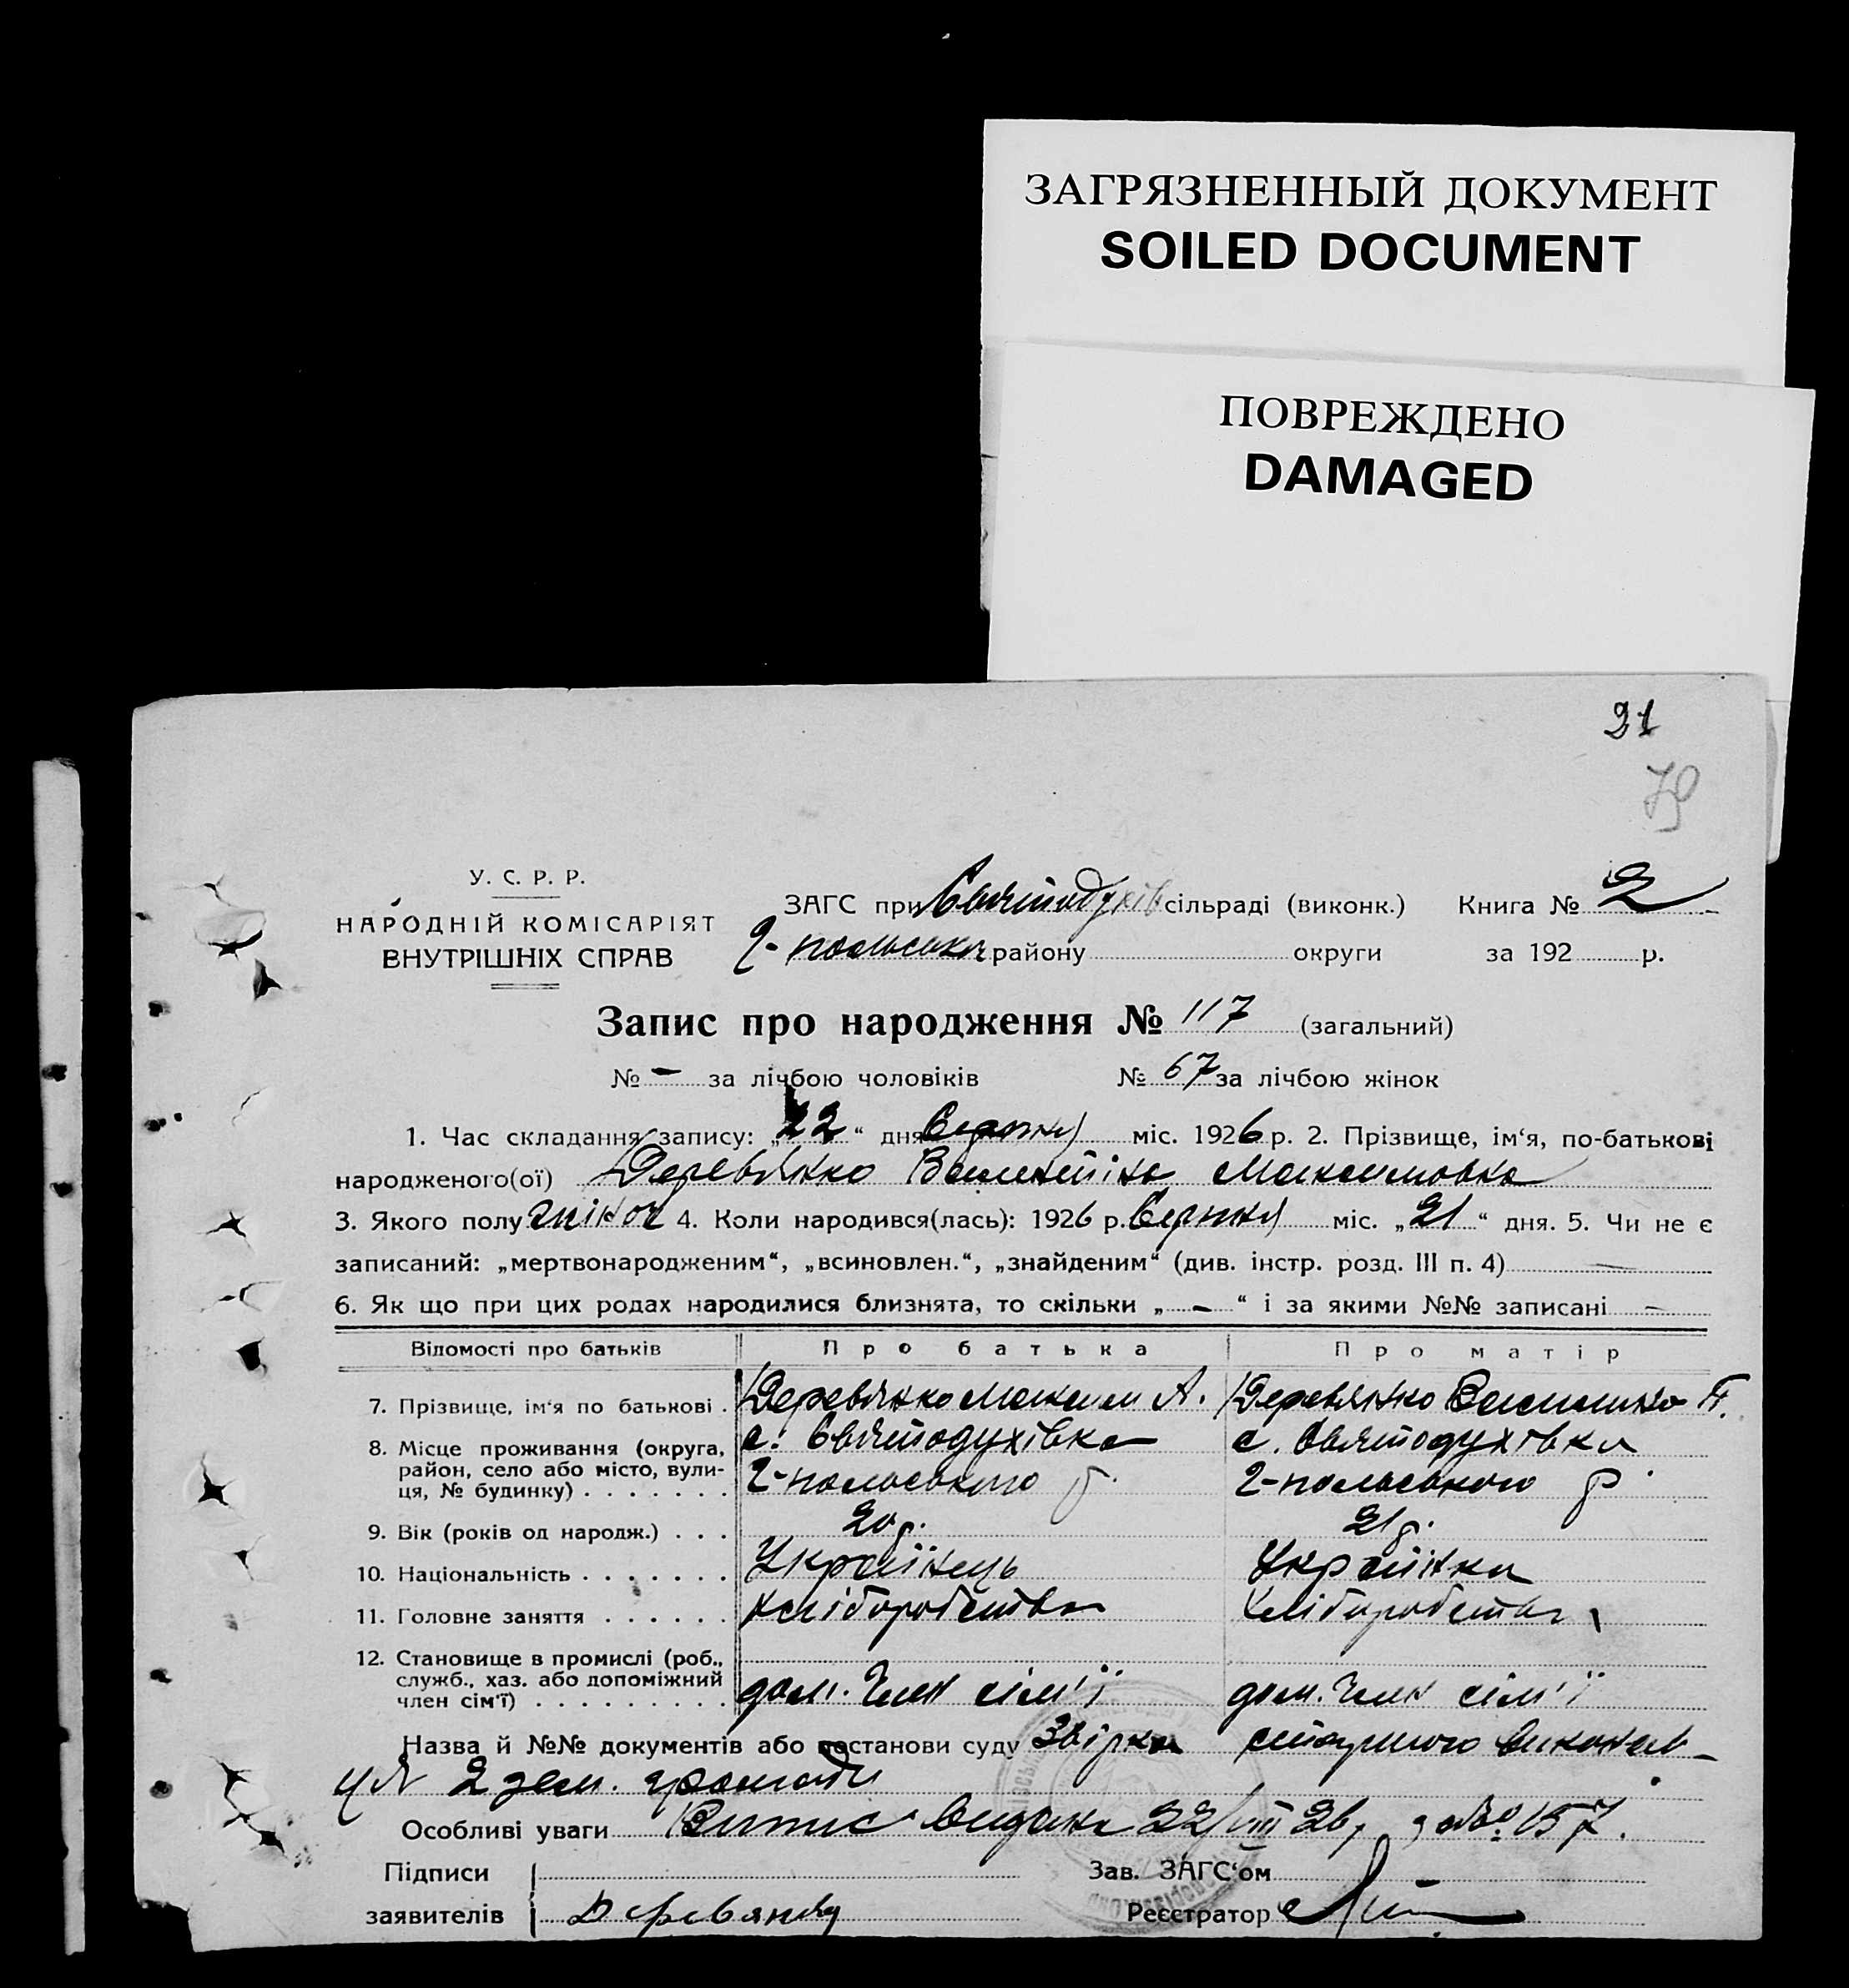 ЗАГРЯЗНЕННЫЙ ДОКУМЕНТ
SOILED DOCUMENT
ПОВРЕЖДЕНО
DAMAGED
21
79
У. С. Р. Р.
НАРОДНІЙ КОМІСАРІЯТ
ВНУТРІШНІХ СПРАВ
ЗАГС при Святодухів сільраді (виконк.) Книга № 2
району округи за 192 р.
Запис про народження № 117 (загальний)
№ - за лічбою чоловіків № 67 за лічбою жінок
1. Час складання запису: „22“ дня Серпня міс. 1926 р. 2. Прізвище, ім‘я, по-батькові
народженого(ої) Деревянко Валентіна Максимовна
3. Якого полу жіноч 4. Коли народився(лась): 1926 р. Серпня міс. „21“ дня. 5. Чи не є
записаний: „мертвонародженим“, „всиновлен.“, „знайденим“ (див. інстр. розд. III п. 4) —
6. Як що при цих родах народилися близнята, то скільки „ - “ і за якими №№ записані -
Відомості про батьків Про батька Про матір
7. Прізвище, ім‘я по батькові . Деревянко Максим А. Деревянко Василина П.
8. Місце проживання (округа, с. Святодухівка с. Святодухівка
район, село або місто, вули-
ця, № будинку) . . . . . . . 2-польського р. 2-польського р.
9. Вік (років од народж.) . . . 20 р. 21 р.
10. Національність . . . . . . . Українець Українка
11. Головне заняття . . . . . . Хліборобство Хліборобство
12. Становище в промислі (роб.,
служб., хаз. або допоміжний
член сім‘ї) . . . . . . . . . доп. член сім'ї доп. член сім'ї
Назва й №№ документів або постанови суду Звірка
2 зем. громади
Особливі уваги Витис видано 22/VIII 26 р. за № 157.
Підписи Зав. ЗАГС‘ом
заявителів Деревянку Реєстратор